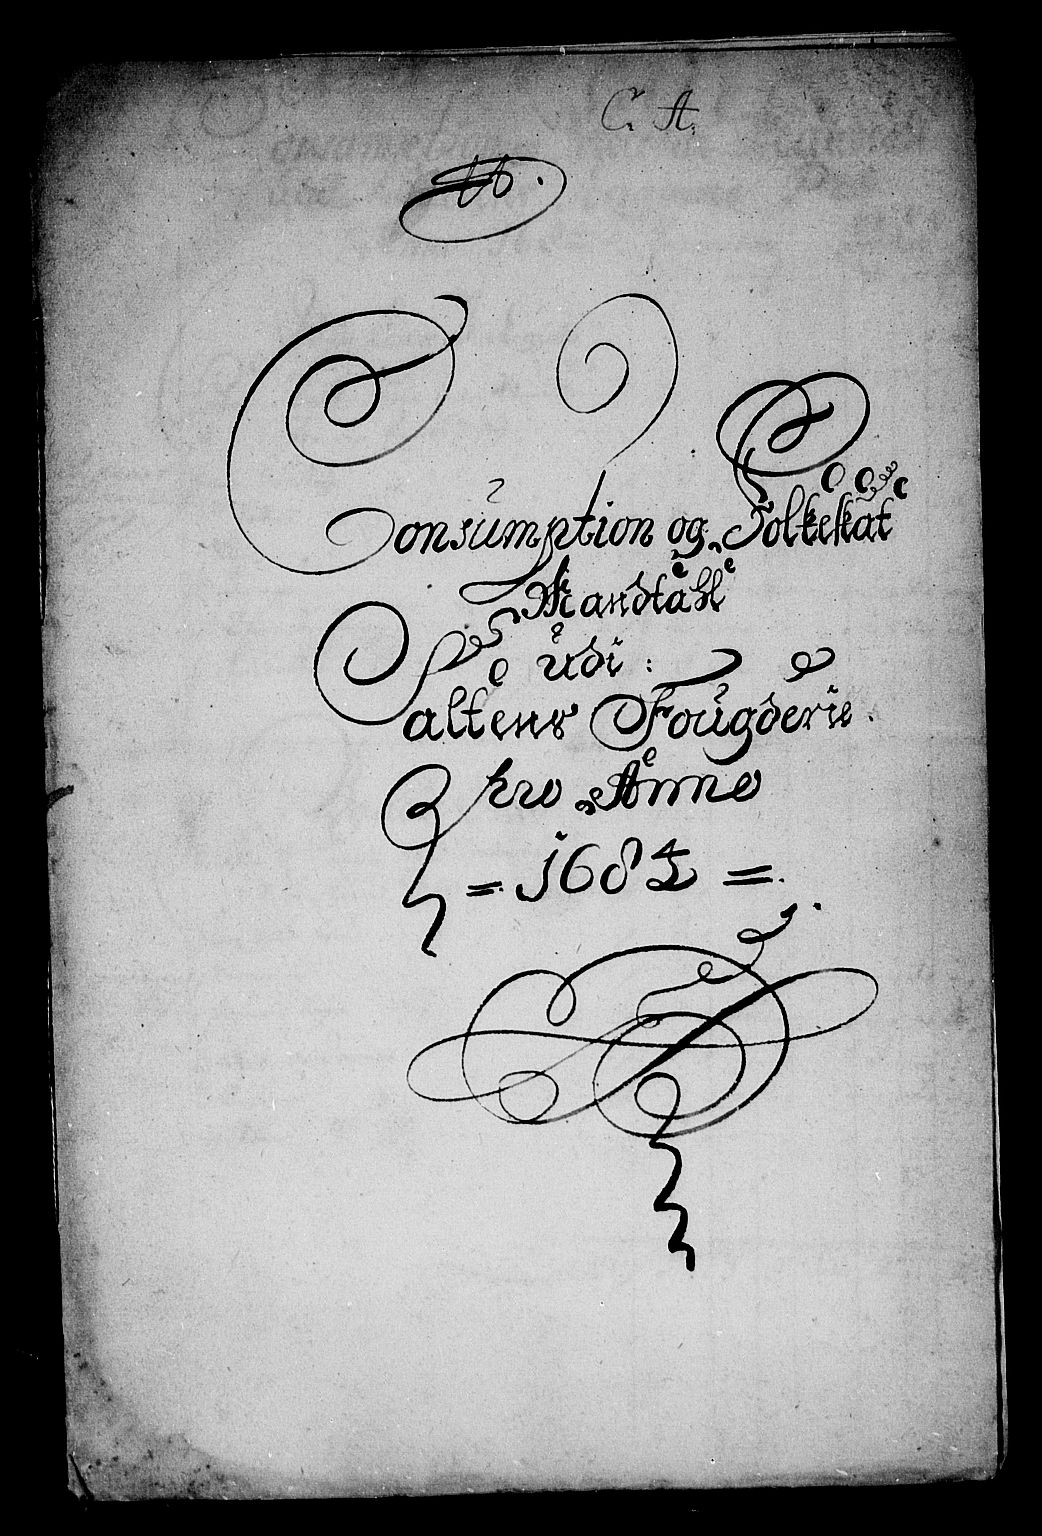 C. A.
Consumption og Folkeskat
Mandtahl
udi:
Saltens Fougderie.
pro Anno
= 1684 =.